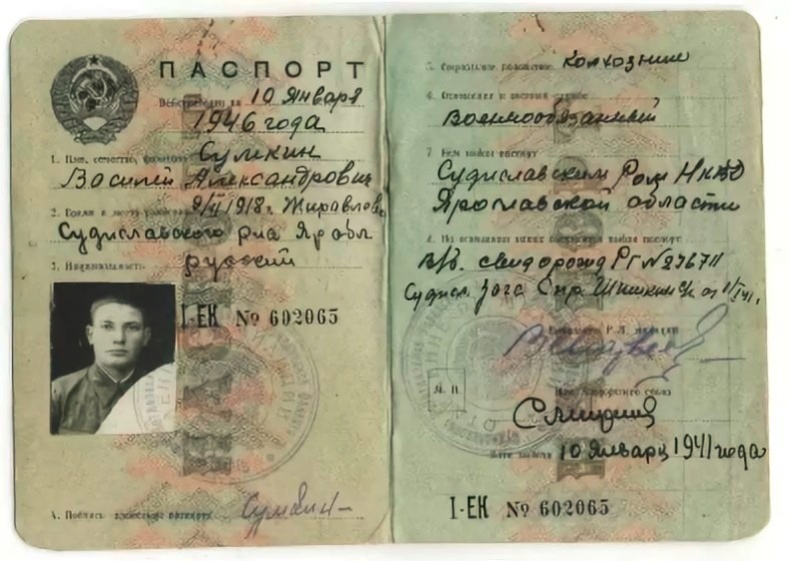 ПАСПОРТ
Действителен по 10 Января
1946 года
1. Имя, отчество, фамилия Сумкин
Василий Александрович
2. Время и место рождения 9/VI 1918 г. Журавлево
Судиславского р-на Яр обл
3. Национальность русский
I-ЕК № 602065
4. Подпись владельца паспорта Сумкин
5. Социальное положение Колхозник
6. Отношение к военной службе
Военнообязанный
7 Кем выдан паспорт
Судиславским Ром НКВД
Ярославской области
8. На основании каких документов выдан паспорт
свид о рожд РГ № 276711
Судисл. Загс Спр.
М. П.
10 Января 1941 года
I-ЕК № 602065